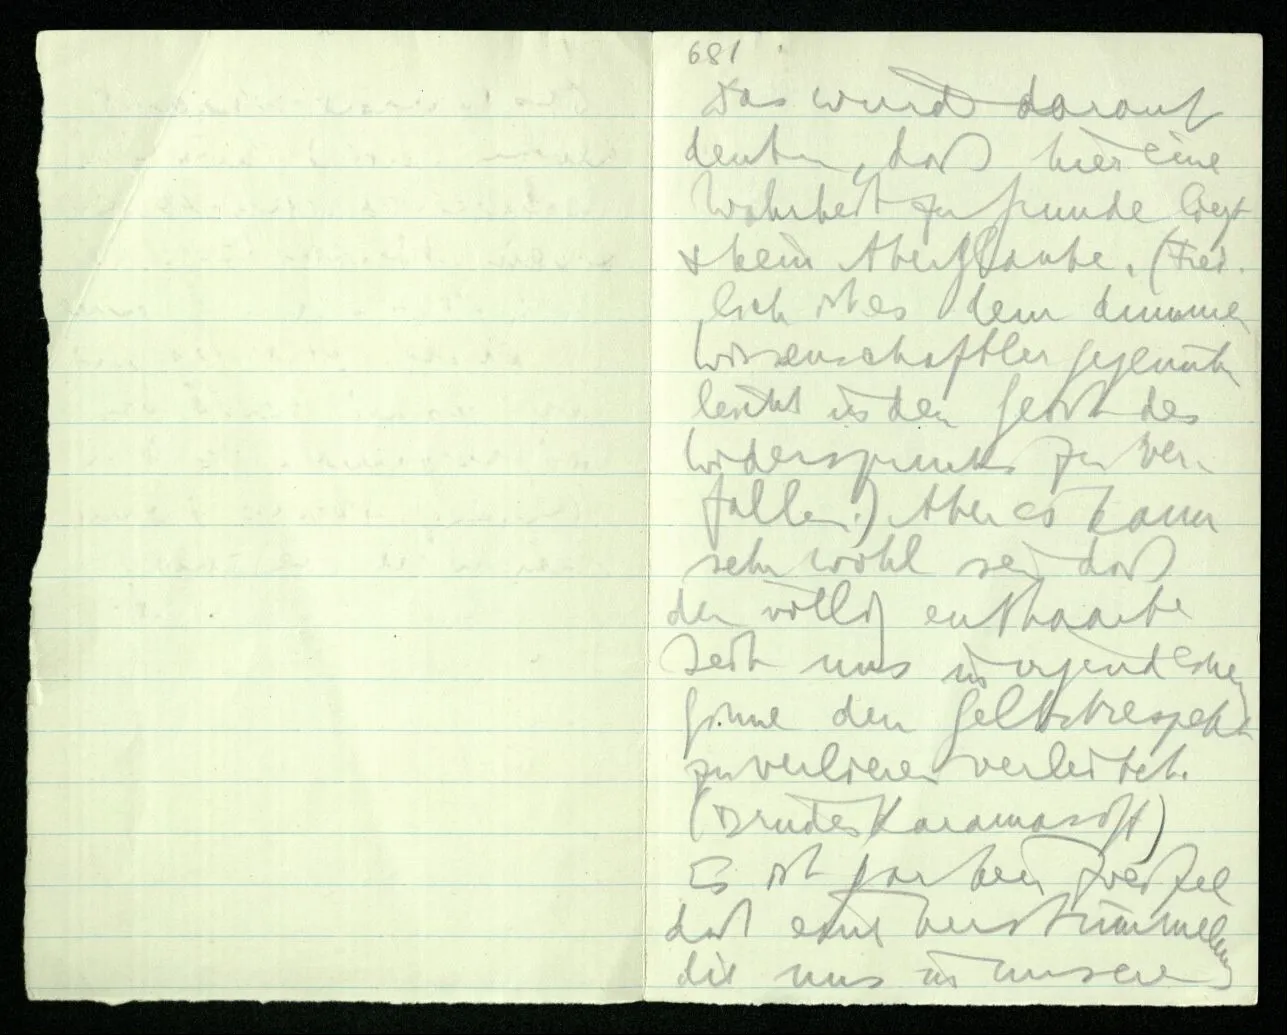 681
Das würde darauf
deuten, daß hier eine
Wahrheit zu Grunde liegt
& kein Aberglaube. (Frei-
lich ist es dem dummen
Wissenschaftler gegenüber
leicht in den Geist des
Widerspruchs zu ver-
fallen.) Aber es kann
sehr wohl sein daß
der völlig enthaarte
Leib uns in irgend einem
Sinne den Selbstrespekt
zu verlieren verleitet.
(Brüder Karamasoff)
Es ist gar kein Zweifel
daß eine Verstümmelung
die uns in unseren